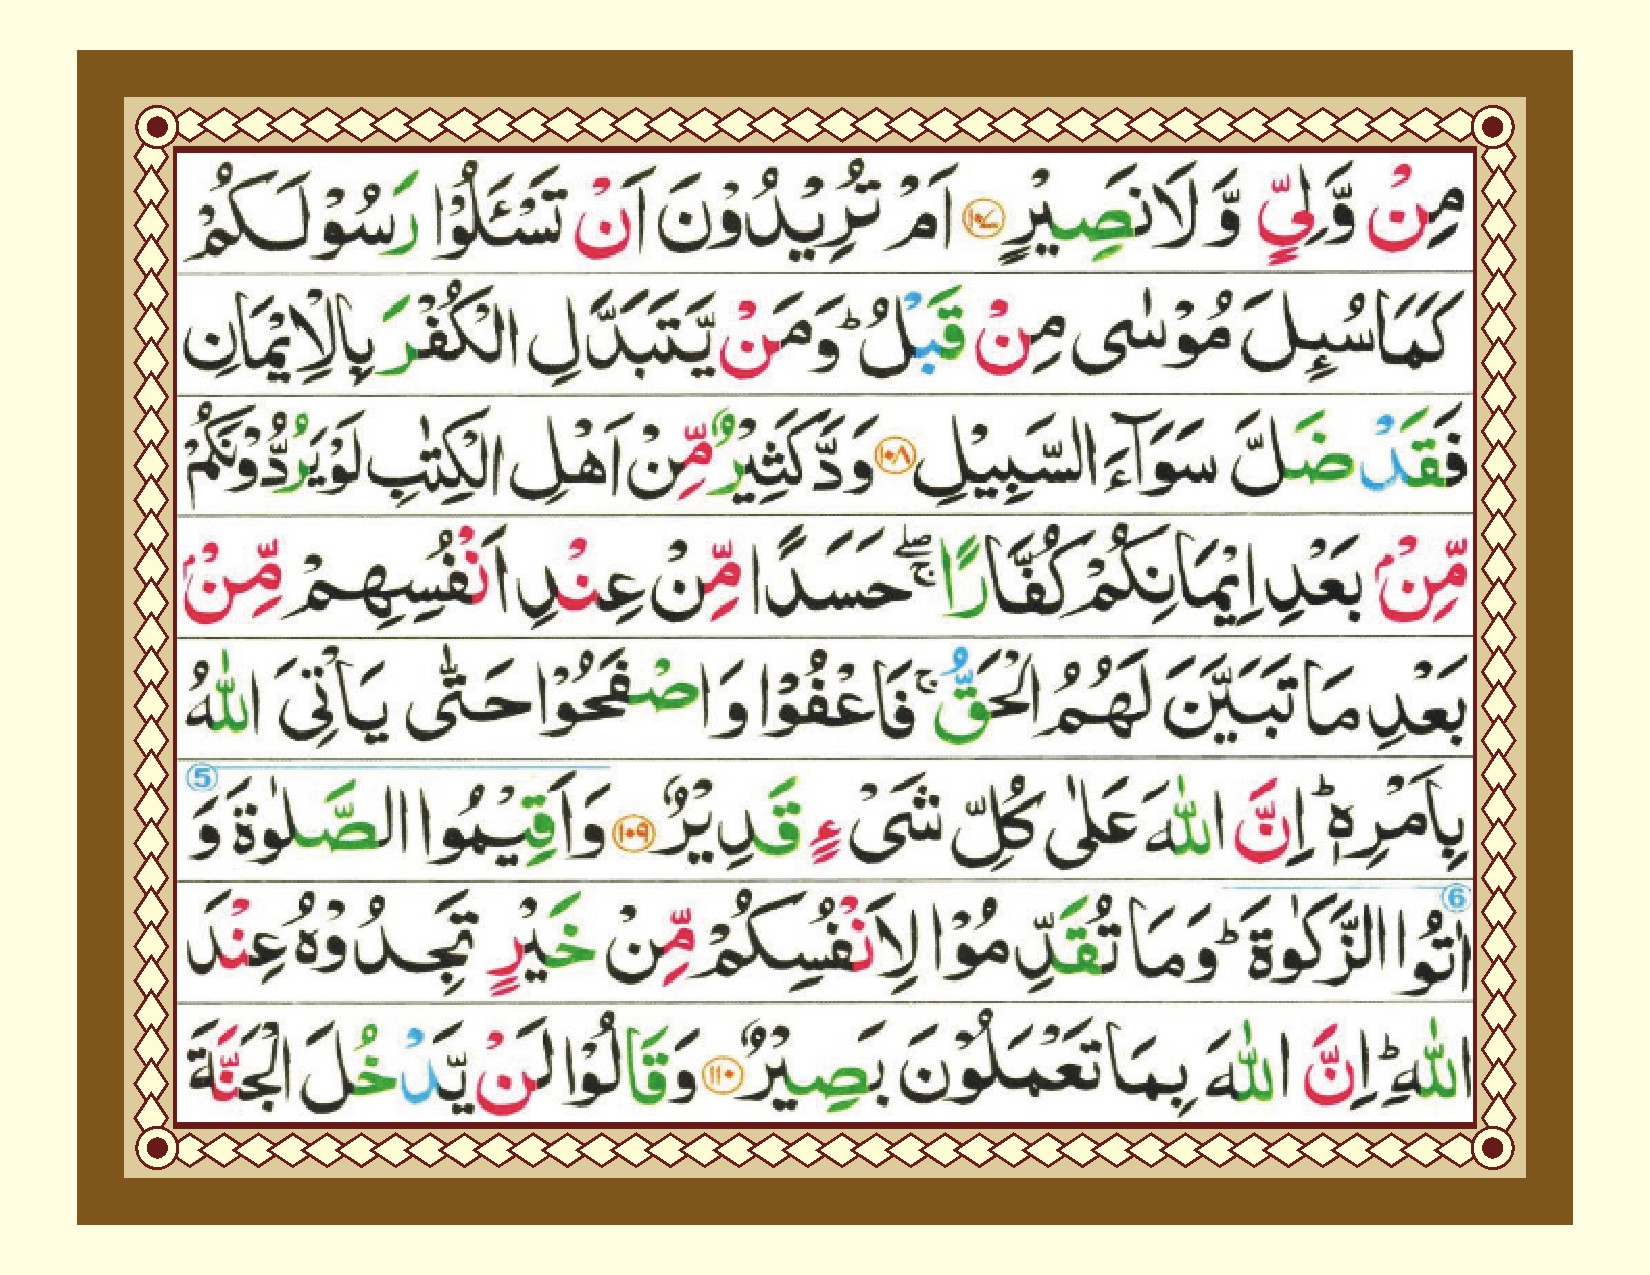 مِنْ وَّلِيٍّ وَّ لَا نَصِيْرٍ ﴿۱۰۷﴾ اَمْ تُرِيْدُوْنَ اَنْ تَسْـَٔلُوْا رَسُوْلَـكُمْ
كَمَا سُىِٕلَ مُوْسٰى مِنْ قَبْلُ ؕ وَ مَنْ يَّتَبَدَّلِ الْكُفْرَ بِالْاِيْمَانِ
فَقَدْ ضَلَّ سَوَآءَ السَّبِيْلِ ﴿۱۰۸﴾ وَدَّ كَثِيْرٌ مِّنْ اَهْلِ الْكِتٰبِ لَوْ يَرُدُّوْنَكُمْ
مِّنْۢ بَعْدِ اِيْمَانِكُمْ كُفَّارًا ۖۚ حَسَدًا مِّنْ عِنْدِ اَنْفُسِهِمْ مِّنْۢ
بَعْدِ مَا تَبَيَّنَ لَهُمُ الْحَقُّ ۚ فَاعْفُوْا وَاصْفَحُوْا حَتّٰى يَاْتِىَ اللّٰهُ
بِاَمْرِهٖ ؕ اِنَّ اللّٰهَ عَلٰى كُلِّ شَىْءٍ قَدِيْرٌ ﴿۱۰۹﴾ وَاَقِيْمُوا الصَّلٰوةَ وَ 5
6 اٰتُوا الزَّكٰوةَ ؕ وَمَا تُقَدِّمُوْا لِاَنْفُسِكُمْ مِّنْ خَيْرٍ تَجِدُوْهُ عِنْدَ
اللّٰهِ ؕ اِنَّ اللّٰهَ بِمَا تَعْمَلُوْنَ بَصِيْرٌ ﴿۱۱۰﴾ وَقَالُوْا لَنْ يَّدْخُلَ الْجَنَّةَ